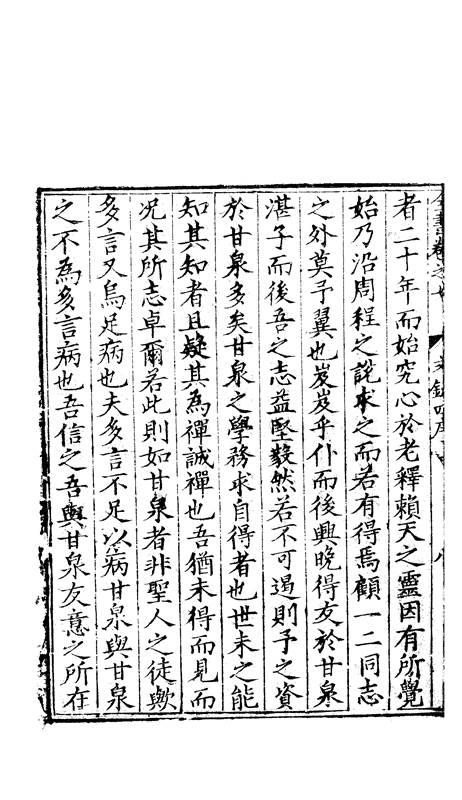 全書卷之七 文錄四序 八
者二十年而始究心於老釋賴天之靈因有所覺
始乃沿周程之說求之而若有得焉顧一二同志
之外莫予翼也岌岌乎仆而後興晚得友於甘泉
湛子而後吾之志益堅毅然若不可遏則予之資
於甘泉多矣甘泉之學務求自得者也世未之能
知其知者且疑其為禪誠禪也吾猶未得而見而
况其所志卓爾若此則如甘泉者非聖人之徒歟
多言又烏足病也夫多言不足以病甘泉與甘泉
之不為多言病也吾信之吾與甘泉友意之所在